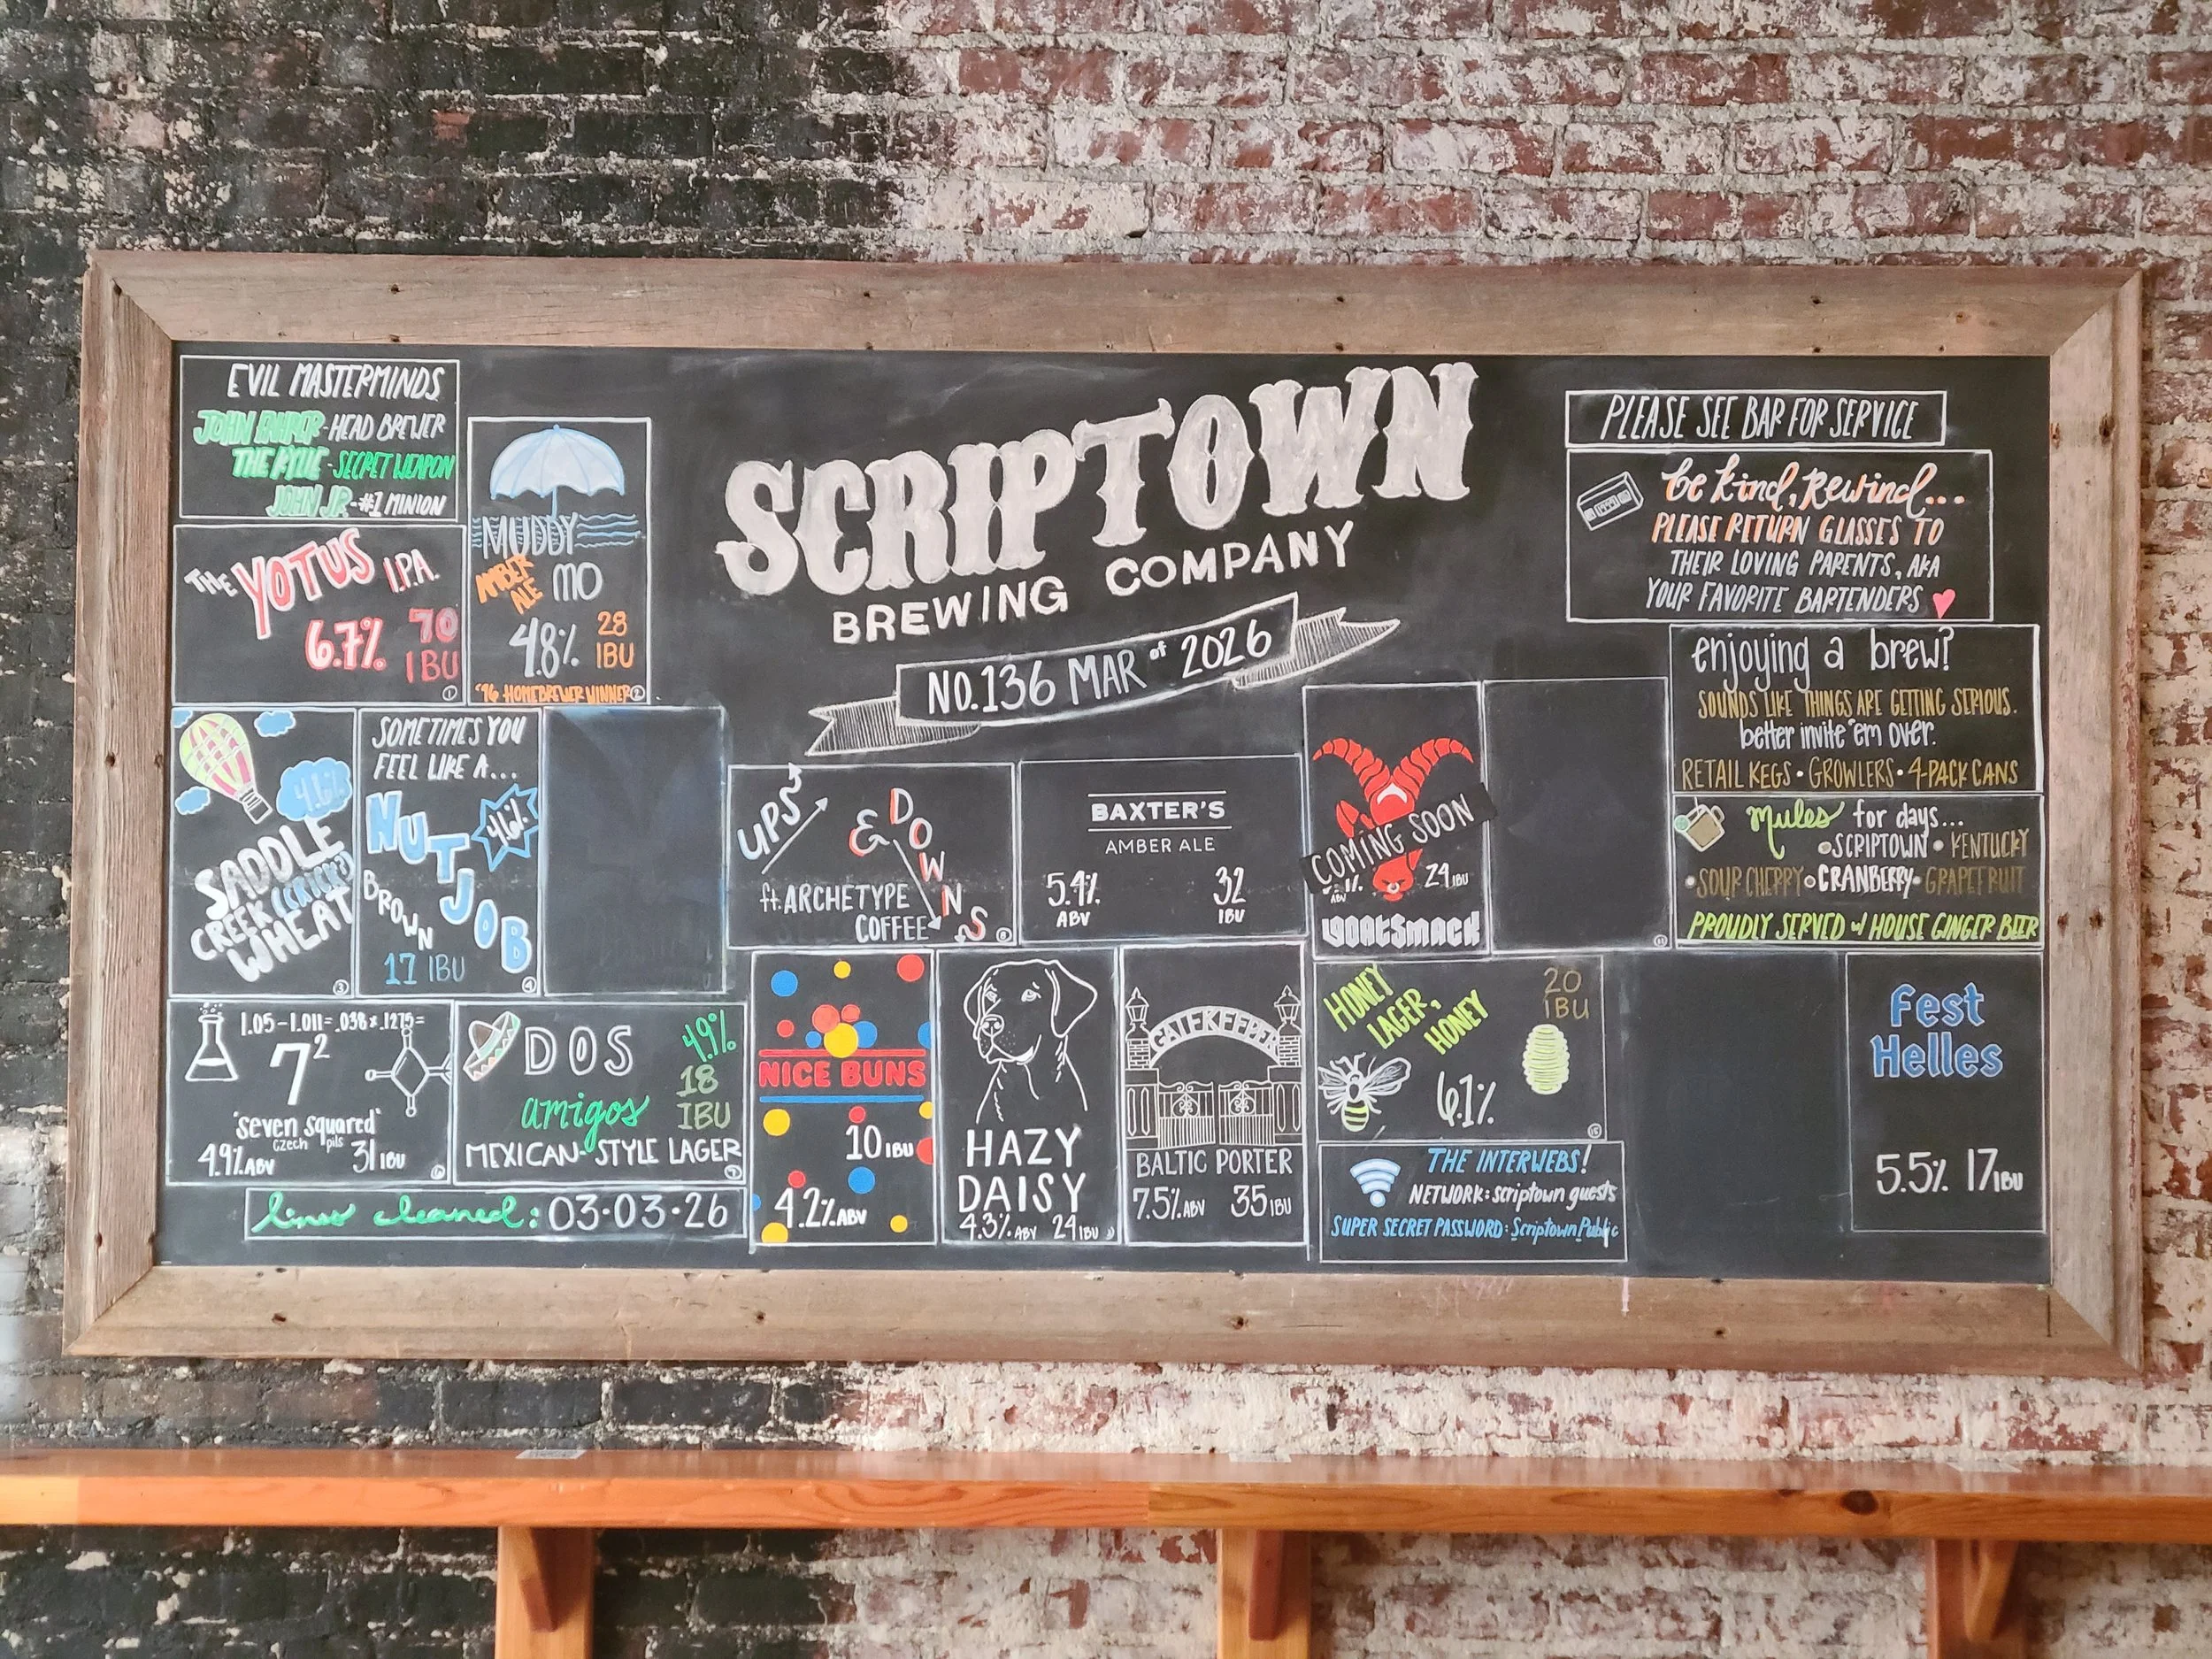 EVIL MASTERMINDS
JOHN - HEAD BREWER
THE KYLE - SECRET WEAPON
JOHN JR. - #1 MINION
THE YOTUS I.P.A.
6.7% 70
IBU
1
MUDDY
AMBER ALE MO
4.8% 28
IBU
'96 HOMEBREWER WINNER 2
SCRIPTOWN
BREWING COMPANY
NO.136 MAR of 2026
PLEASE SEE BAR FOR SERVICE
be kind, rewind...
PLEASE RETURN GLASSES TO
THEIR LOVING PARENTS, AKA
YOUR FAVORITE BARTENDERS
enjoying a brew?
SOUNDS LIKE THINGS ARE GETTING SERIOUS.
better invite 'em over.
RETAIL KEGS • GROWLERS • 4-PACK CANS
mules for days...
• SCRIPTOWN • KENTUCKY
• SOUR CHERRY • CRANBERRY • GRAPEFRUIT
PROUDLY SERVED w/ HOUSE GINGER BEER
4.6%
SADDLE
CREEK
WHEAT
3
SOMETIMES YOU
FEEL LIKE A...
NUT JOB
4.6%
BROWN
17 IBU
4
UPS & DOWNS
ft. ARCHETYPE
COFFEE
8
BAXTER'S
AMBER ALE
5.4% 32
ABV IBU
COMING SOON
ABV 24 IBU
GOATSMACK
1.05-1.011=.038x.1275=
7²
"seven squared"
czech pils
4.9% ABV 31 IBU
6
DOS
amigos
4.9%
18
IBU
MEXICAN-STYLE LAGER
7
lines cleaned: 03-03-26
NICE BUNS
10 IBU
4.2% ABV
HAZY
DAISY
4.3% ABV 24 IBU
GATEKEEPER
BALTIC PORTER
7.5% ABV 35 IBU
HONEY
LAGER,
HONEY
20
IBU
6.1%
15
THE INTERWEBS!
NETWORK: scriptown guests
SUPER SECRET PASSWORD: ScriptownPublic
Fest
Helles
5.5% 17 IBU